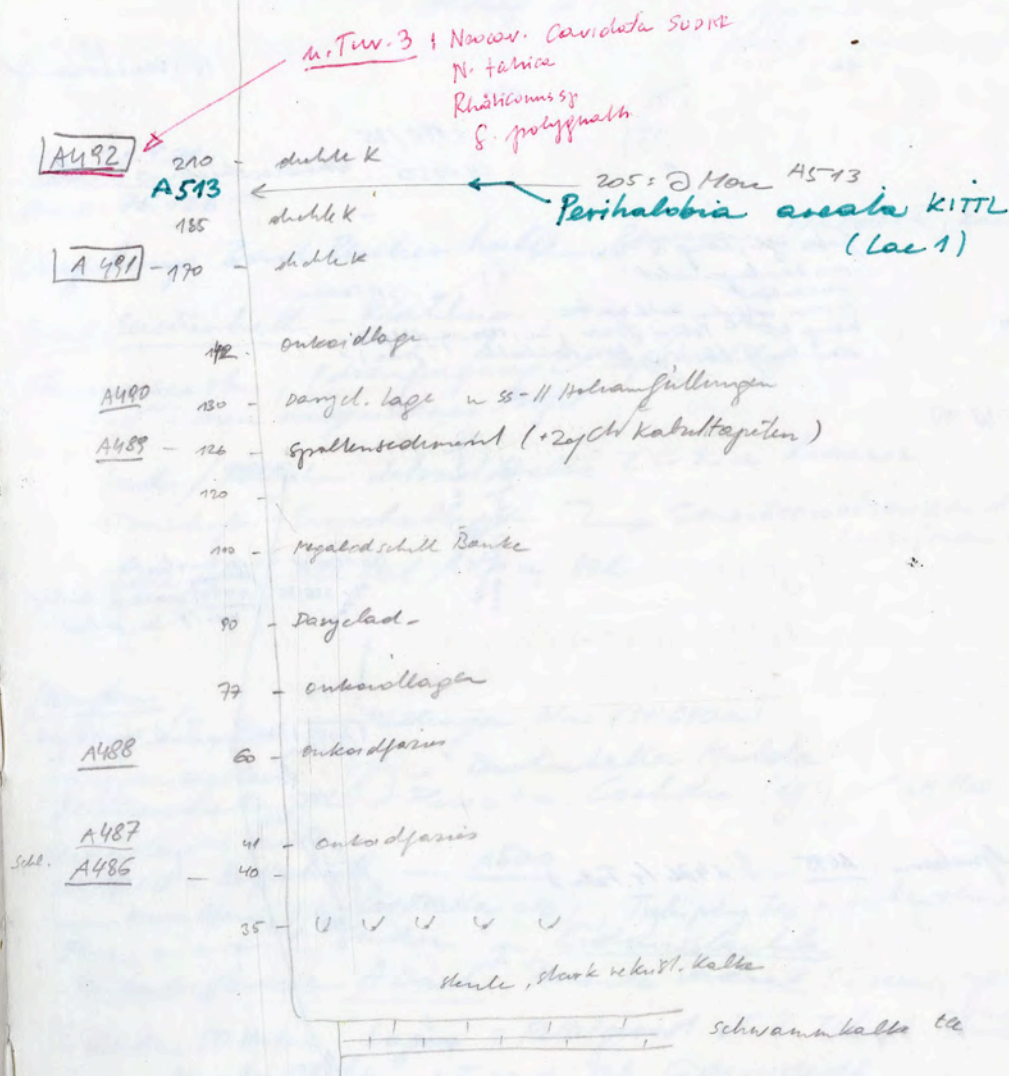 u. Tuv. 3 : Neocav. Cavidata SUDAR
N. tatrica
Rhäticonus sp
G. polygnath
A492 210 - dichte K
A513 205 : ∂ Mon A513
Perihalobia areata KITTL
(Lac 1)
185 dichte K
A 491 - 170 - dichte K
142. Onkoidlage
A490 130 - Dasycl. Lage
A489 - 126 - Spaltensediment
120 -
100 - Megalodschill Bänke
90 - Dasyclad -
77 - onkoidlagen
A488 60 - onkoidfazies
A487 41 - onkoidfazies
Schl. A486 - 40 -
35 -
stark rekrist. Kalke
Schwammkalke